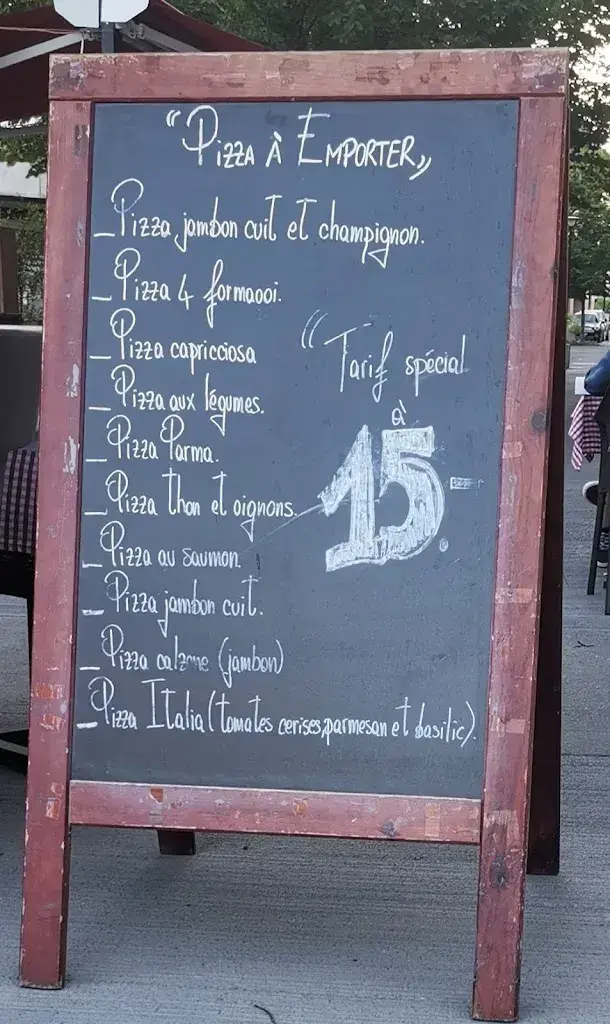 “Pizza À Emporter„
_Pizza jambon cuit et champignon.
_Pizza 4 formaooi.
_Pizza capricciosa
_Pizza aux légumes.
_Pizza Parma.
_Pizza thon et oignons.
_Pizza au saumon
_Pizza jambon cuit.
_Pizza calzone (jambon)
_Pizza Italia (tomates cerises, parmesan et basilic).
“Tarif spécial
à
15.-